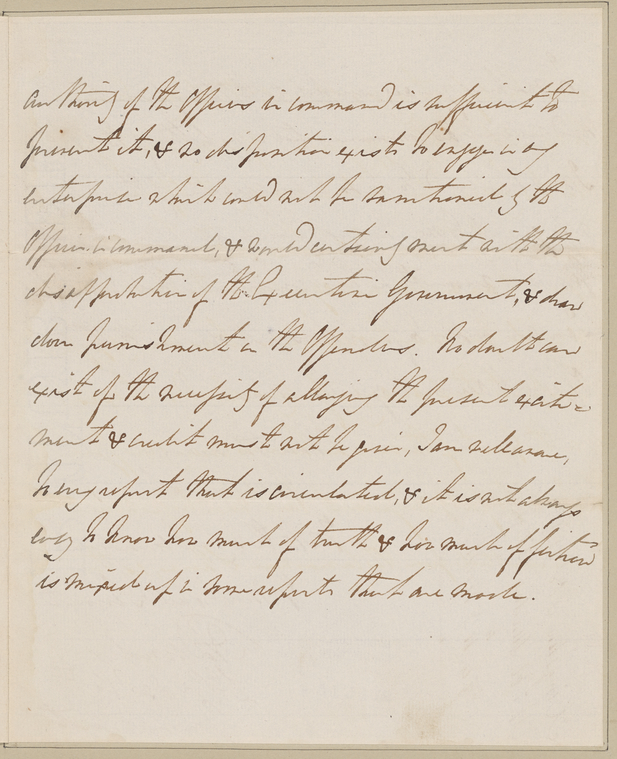 authority of the Officers in command is sufficient to
prevent it, & no disposition exists to engage in any
enterprise which could not be sanctioned by the
Officer in command, & would certainly meet with the
disapprobation of the Executive Government, & draw
down punishment on the Offenders. No doubt can
exist of the necessity of allaying the present excite=
ment & credit must not be given, I am well aware,
to any report that is circulated, & it is not always
easy to know how much of truth & how much of fiction
is mixed up in some reports that are made.